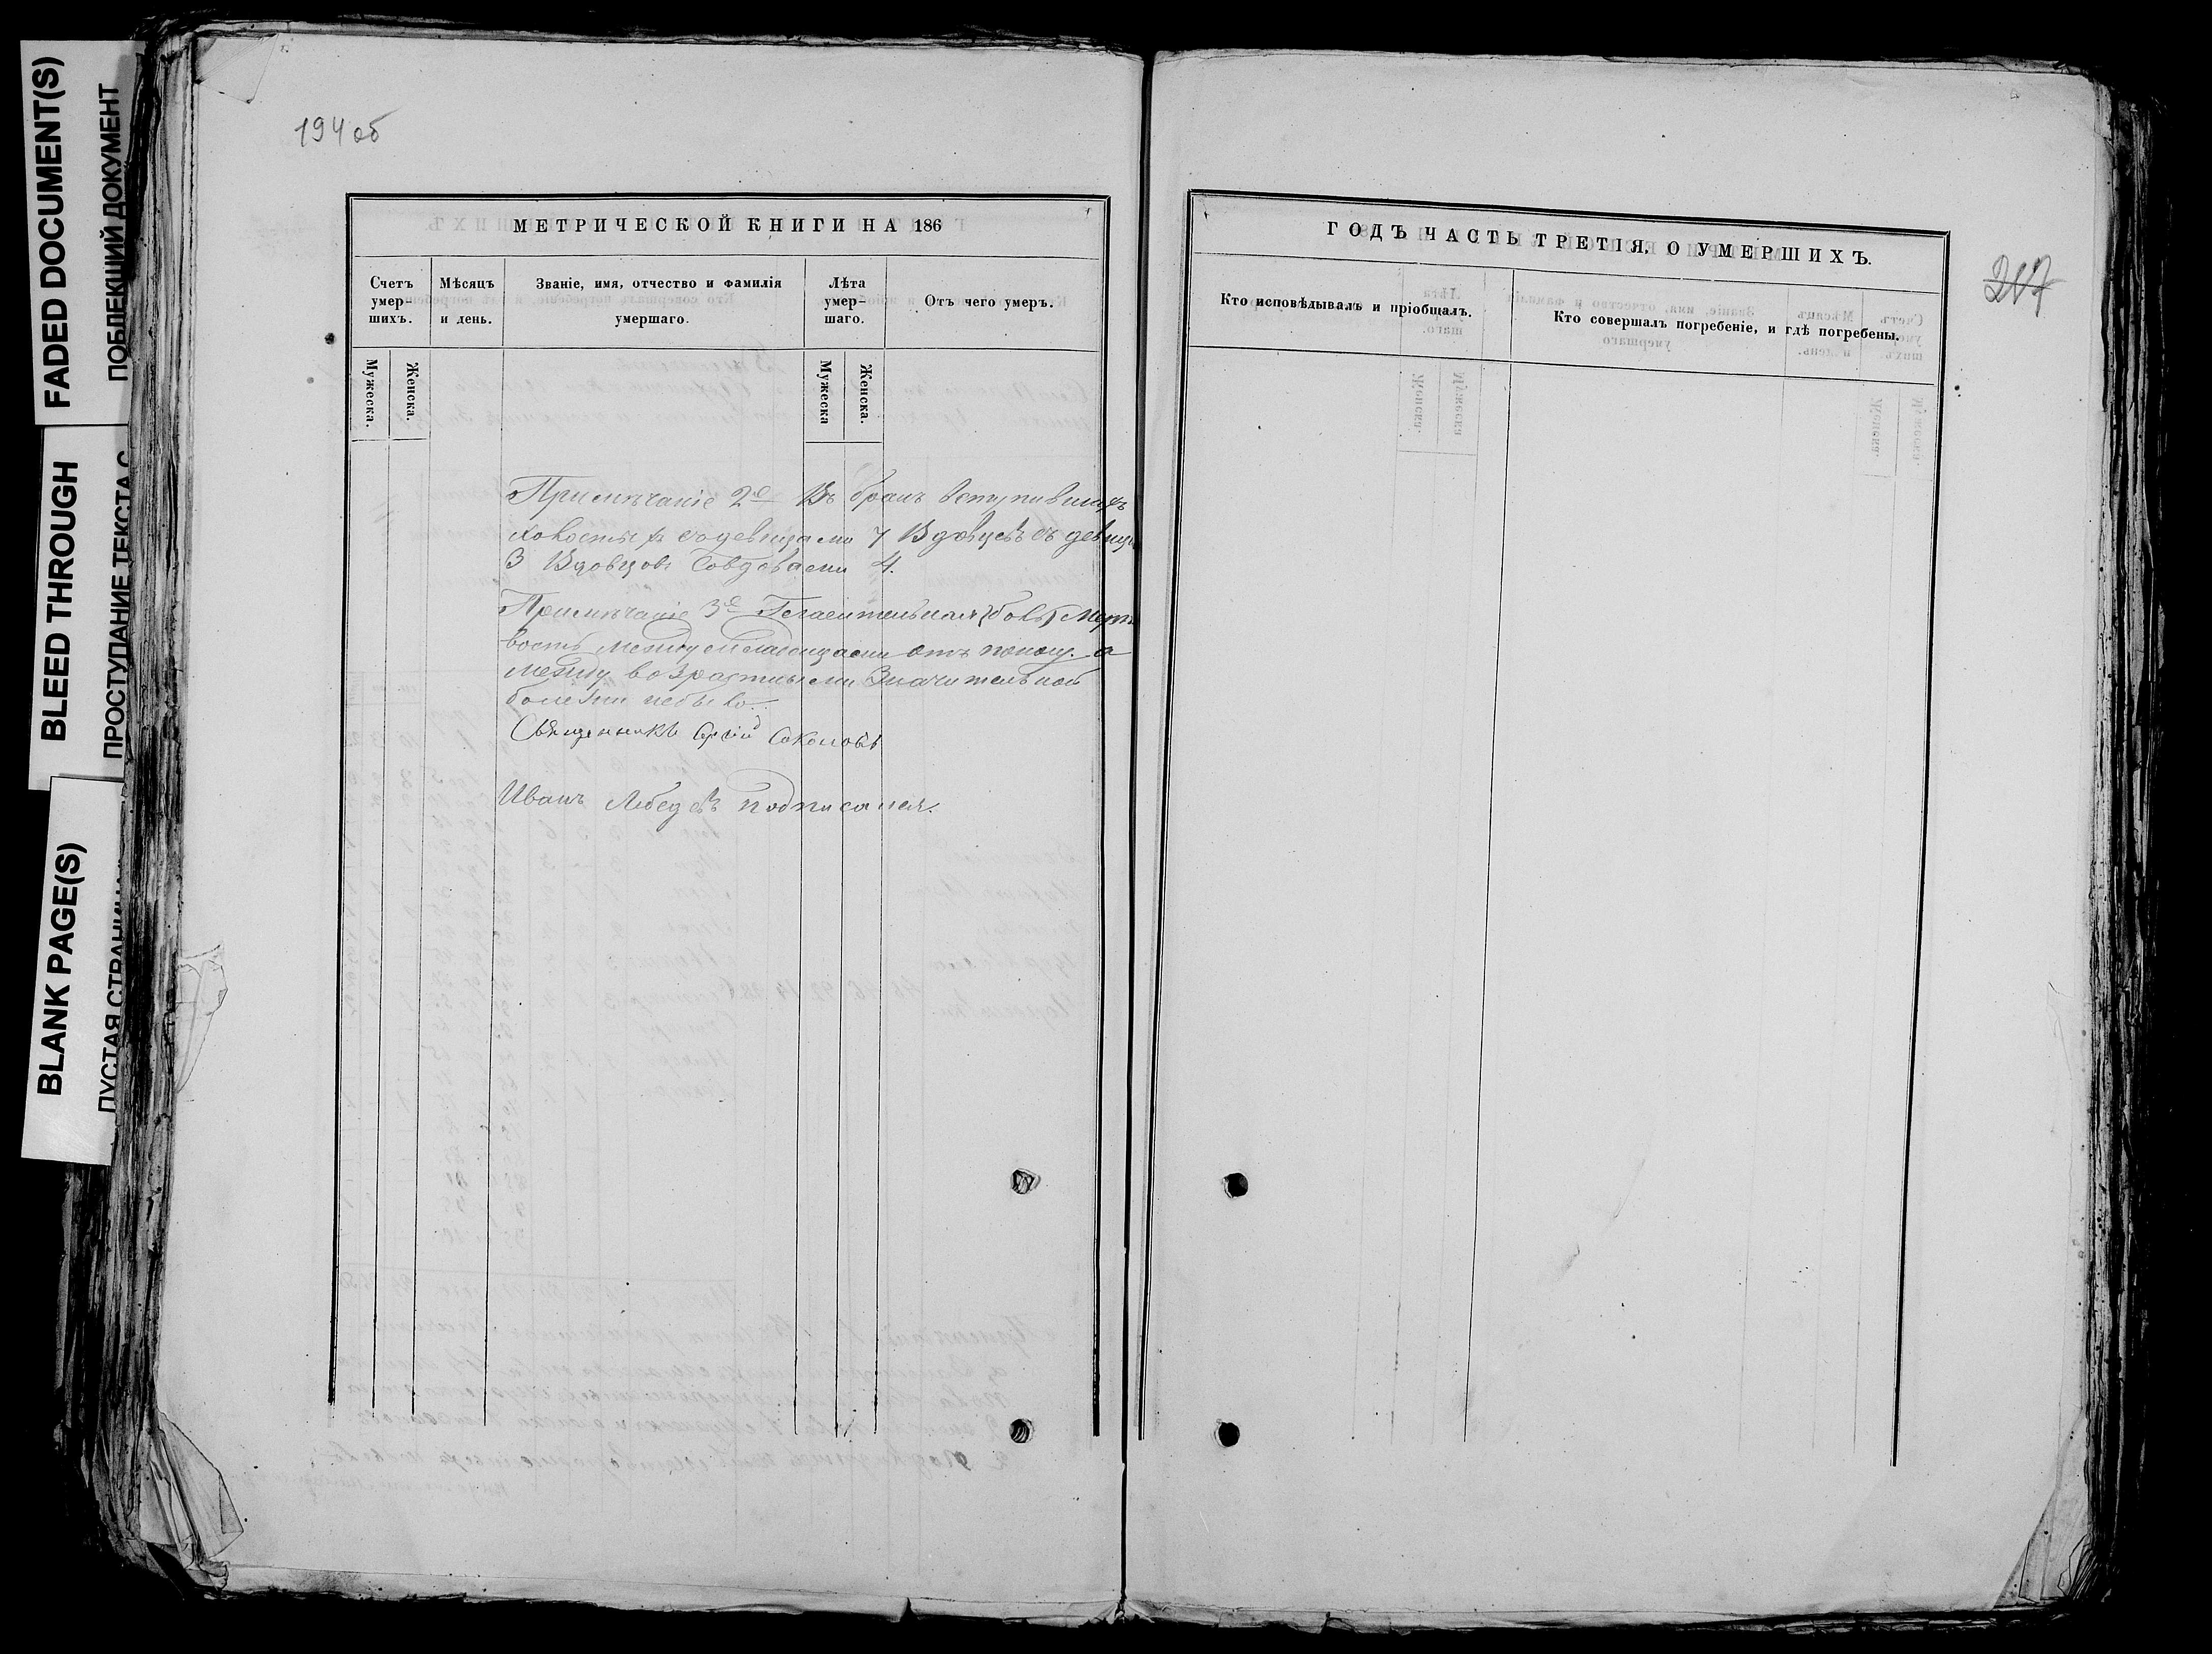 FADED DOCUMENT(S)
ПОБЛЕКШИЙ ДОКУМЕНТ
BLEED THROUGH
ПРОСТУПАНИЕ ТЕКСТА С
BLANK PAGE(S)
ПУСТАЯ СТРАНИЦА
194об
МЕТРИЧЕСКОЙ КНИГИ НА 186
Счетъ умер-шихъ.
Мѣсяцъ и день.
Званіе, имя, отчество и фамилія умершаго.
Лѣта умер-шаго.
Отъ чего умеръ.
Мужеска.
Женска.
Мужеска
Женска.
Примѣчаніе 2е Въ бракъ вступившихъ
холостыхъ съ девицами 7 Вдовцевъ съ девицами
3 Вдовцовъ Совдовами 4.
Примѣчаніе 3е
вость между младенцами отъ поносу. а
между возрастными Значительной
болезни небыло.
Священникъ Соколовъ
Иванъ Лебедевъ подписался.
ГОДЪ ЧАСТЬ ТРЕТІЯ, О УМЕРШИХЪ.
217
Кто исповѣдывалъ и пріобщалъ.
Кто совершалъ погребеніе, и гдѣ погребены.